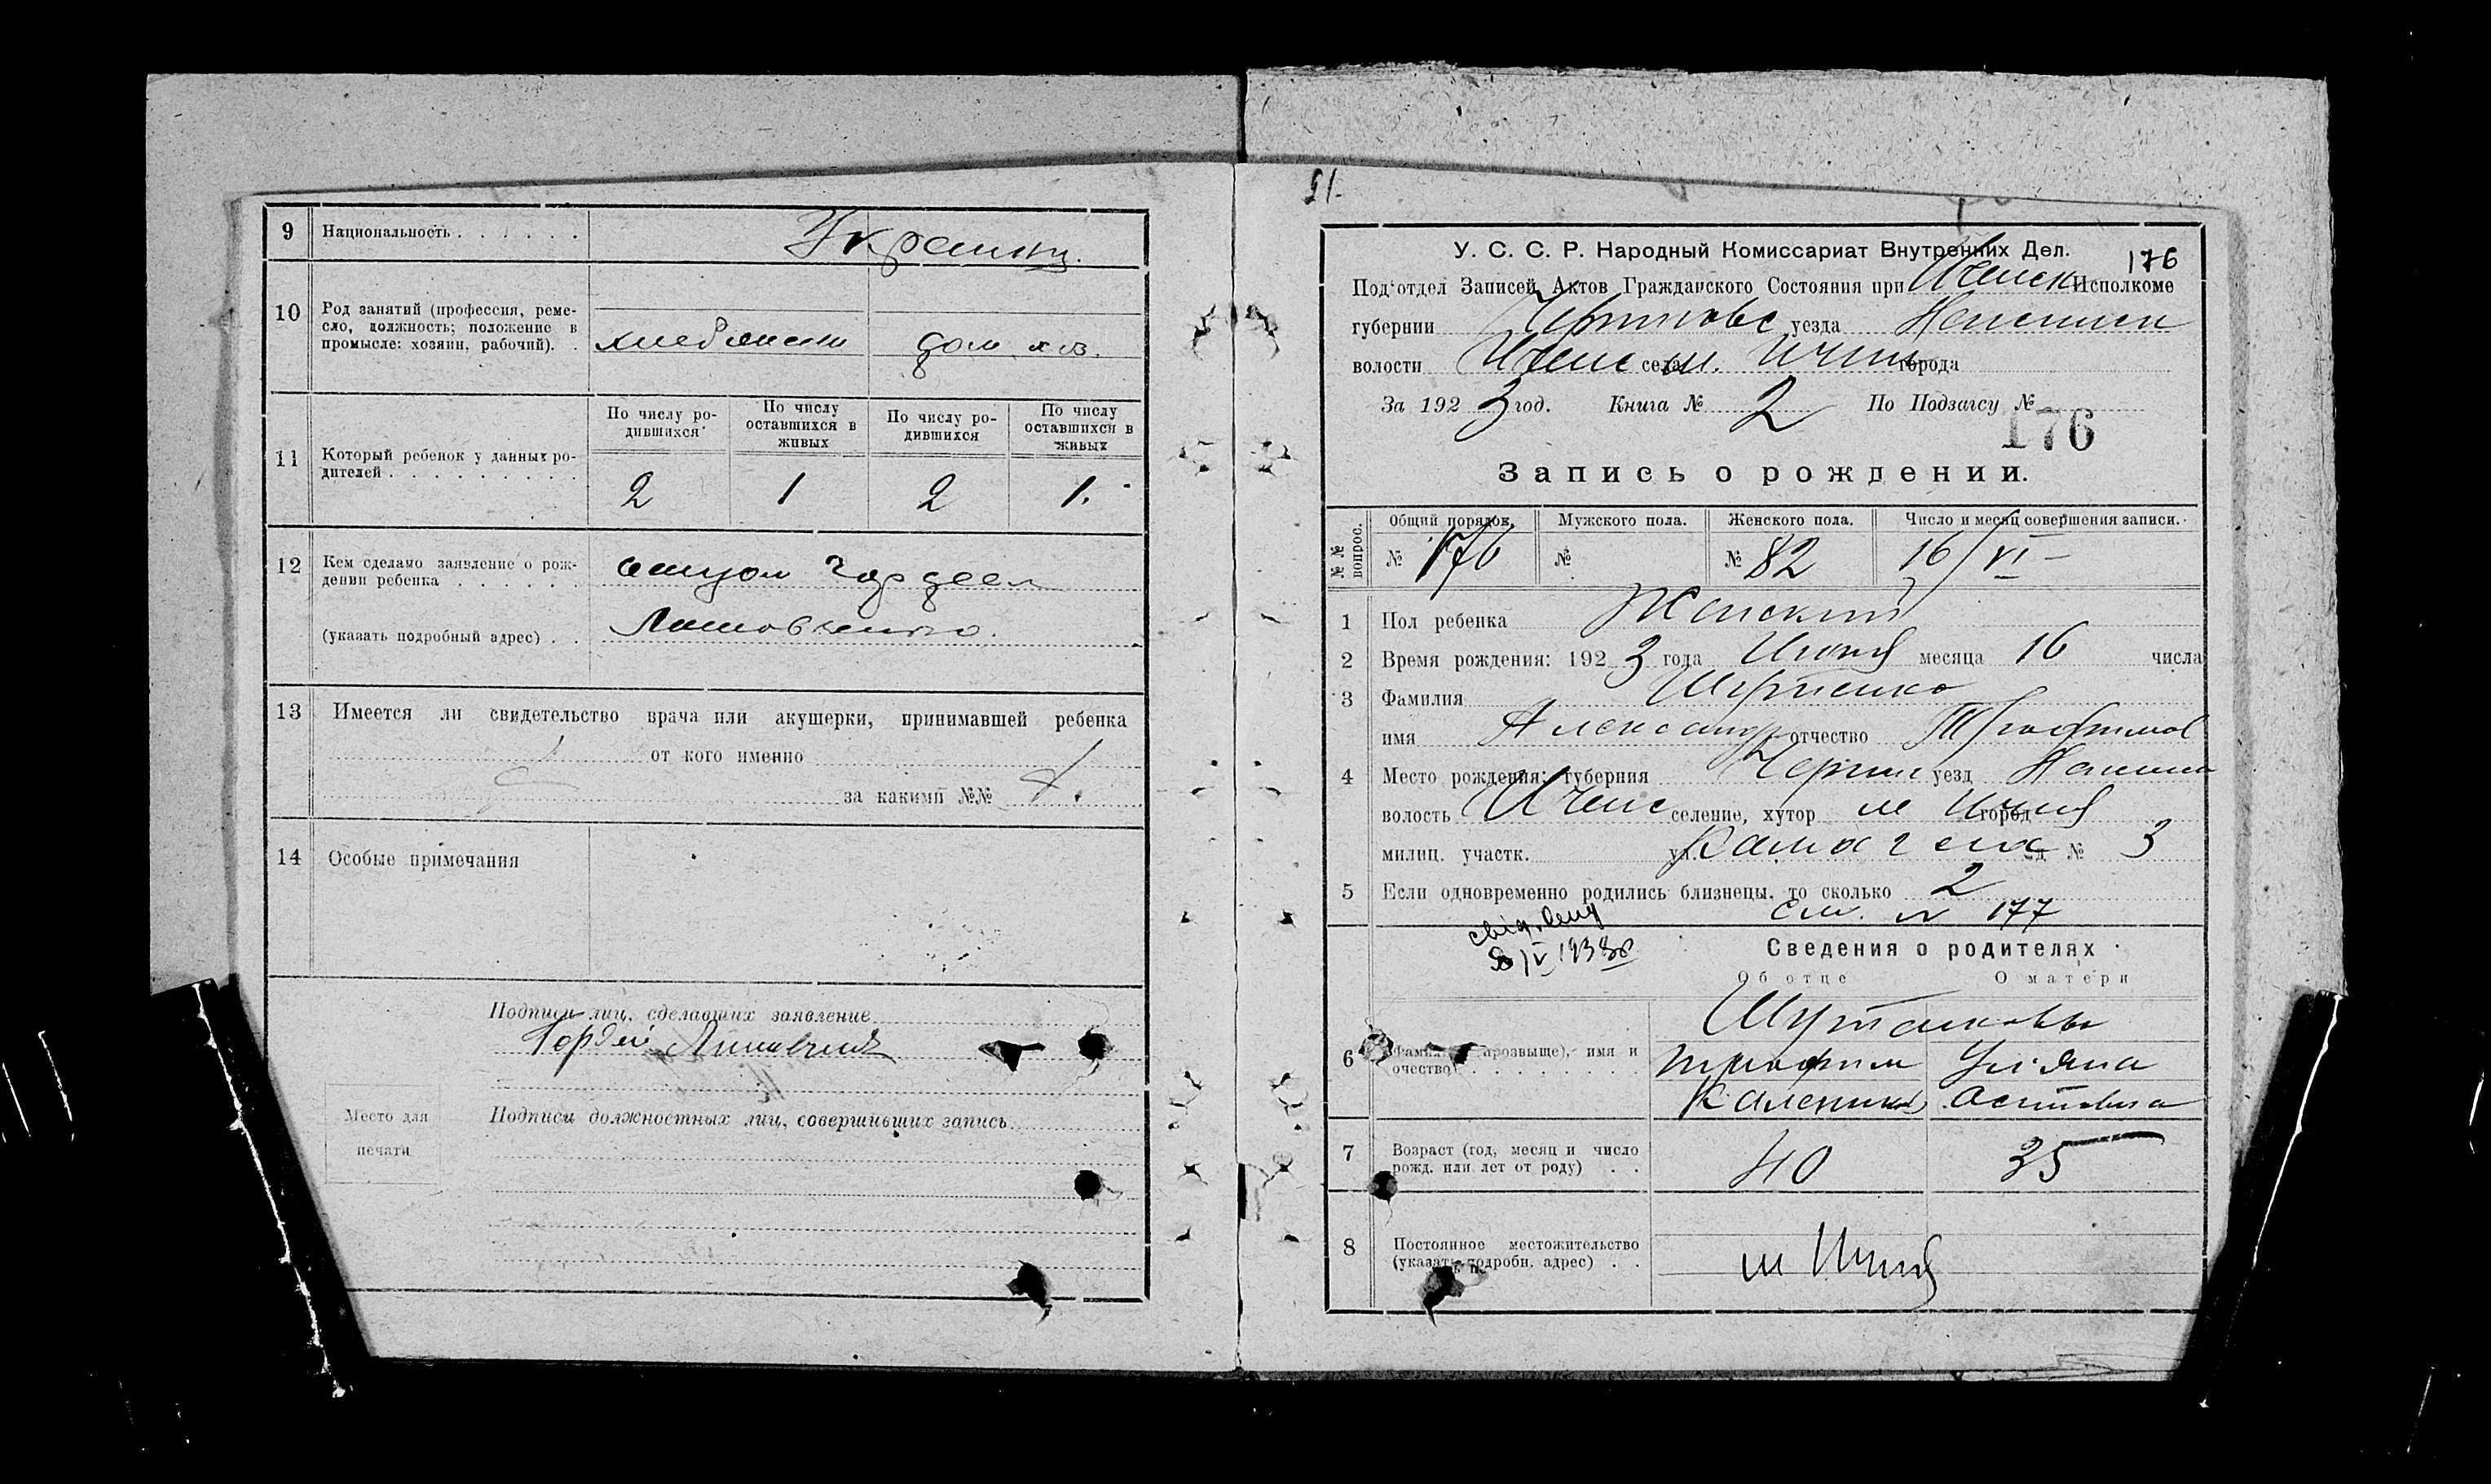 9 Национальность . . . . . . Украинц.
10 Род занятий (профессия, реме-
сло, должность; положение в
промысле: хозяин, рабочий). . дом. хоз.
11 Который ребенок у данных ро-
дителей . . . . . . . . .
По числу ро-
дившихся
По числу
оставшихся в
живых
По числу ро-
дившихся
По числу
оставшихся в
живых
2 1 2 1.
12 Кем сделано заявление о рож-
дении ребенка . . . . . . отцом Гордеем
(указать подробный адрес) . .
13 Имеется ли свидетельство врача или акушерки, принимавшей ребенка
от кого именно
за какими №№
14 Особые примечания
Подписи лиц, сделавших заявление
Гордей
Место для
печати
Подписи должностных лиц, совершивших запись
51-
У. С. С. Р. Народный Комиссариат Внутренних Дел.
176
Под'отдел Записей Актов Гражданского Состояния при Иченск Исполкоме
губернии уезда
волости Иченс села м. города
За 192 3 год. Книга № 2 По Подзагсу №
176
Запись о рождении.
№№ вопрос.
Общий порядок. Мужского пола. Женского пола. Число и месяц совершения записи.
№ 176 № № 82 16/VI-
1 Пол ребенка Женский
2 Время рождения: 192 3 года Июня месяца 16 числа
3 Фамилия
имя Александр отчество Трофимов
4 Место рождения: губерния Черниг уезд
волость Иченс селение, хутор м Ичня город
милиц. участк. ул. д № 3
5 Если одновременно родились близнецы, то сколько 2
см. № 177
V 1938
Сведения о родителях
Об отце О матери
6 Фамилия (прозвыще), имя и
очество . . . . . . . .
Трофим Ульяна
Калеников
7 Возраст (год, месяц и число
рожд. или лет от роду) . . 40 35
8 Постоянное местожительство
(указать подробн. адрес) . . м Ичня